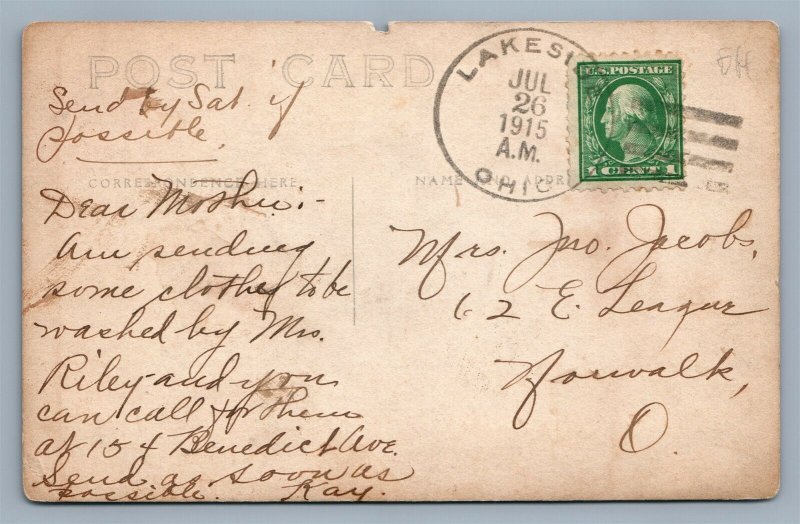 POST CARD
LAKESIDE
JUL
26
1915
A.M.
OHIO
U.S. POSTAGE
1 CENT 1
Send by Sat. if
possible.
CORRESPONDENCE HERE
NAME AND ADDR
Dear Mother:-
Am sending
some clothes to be
washed by Mrs.
Riley and you
can call for them
at 154 Benedict Ave.
Send as soon as
possible. Kay.
Mrs. Jno. Jacobs,
62 E. League
Norwalk,
O.
OH